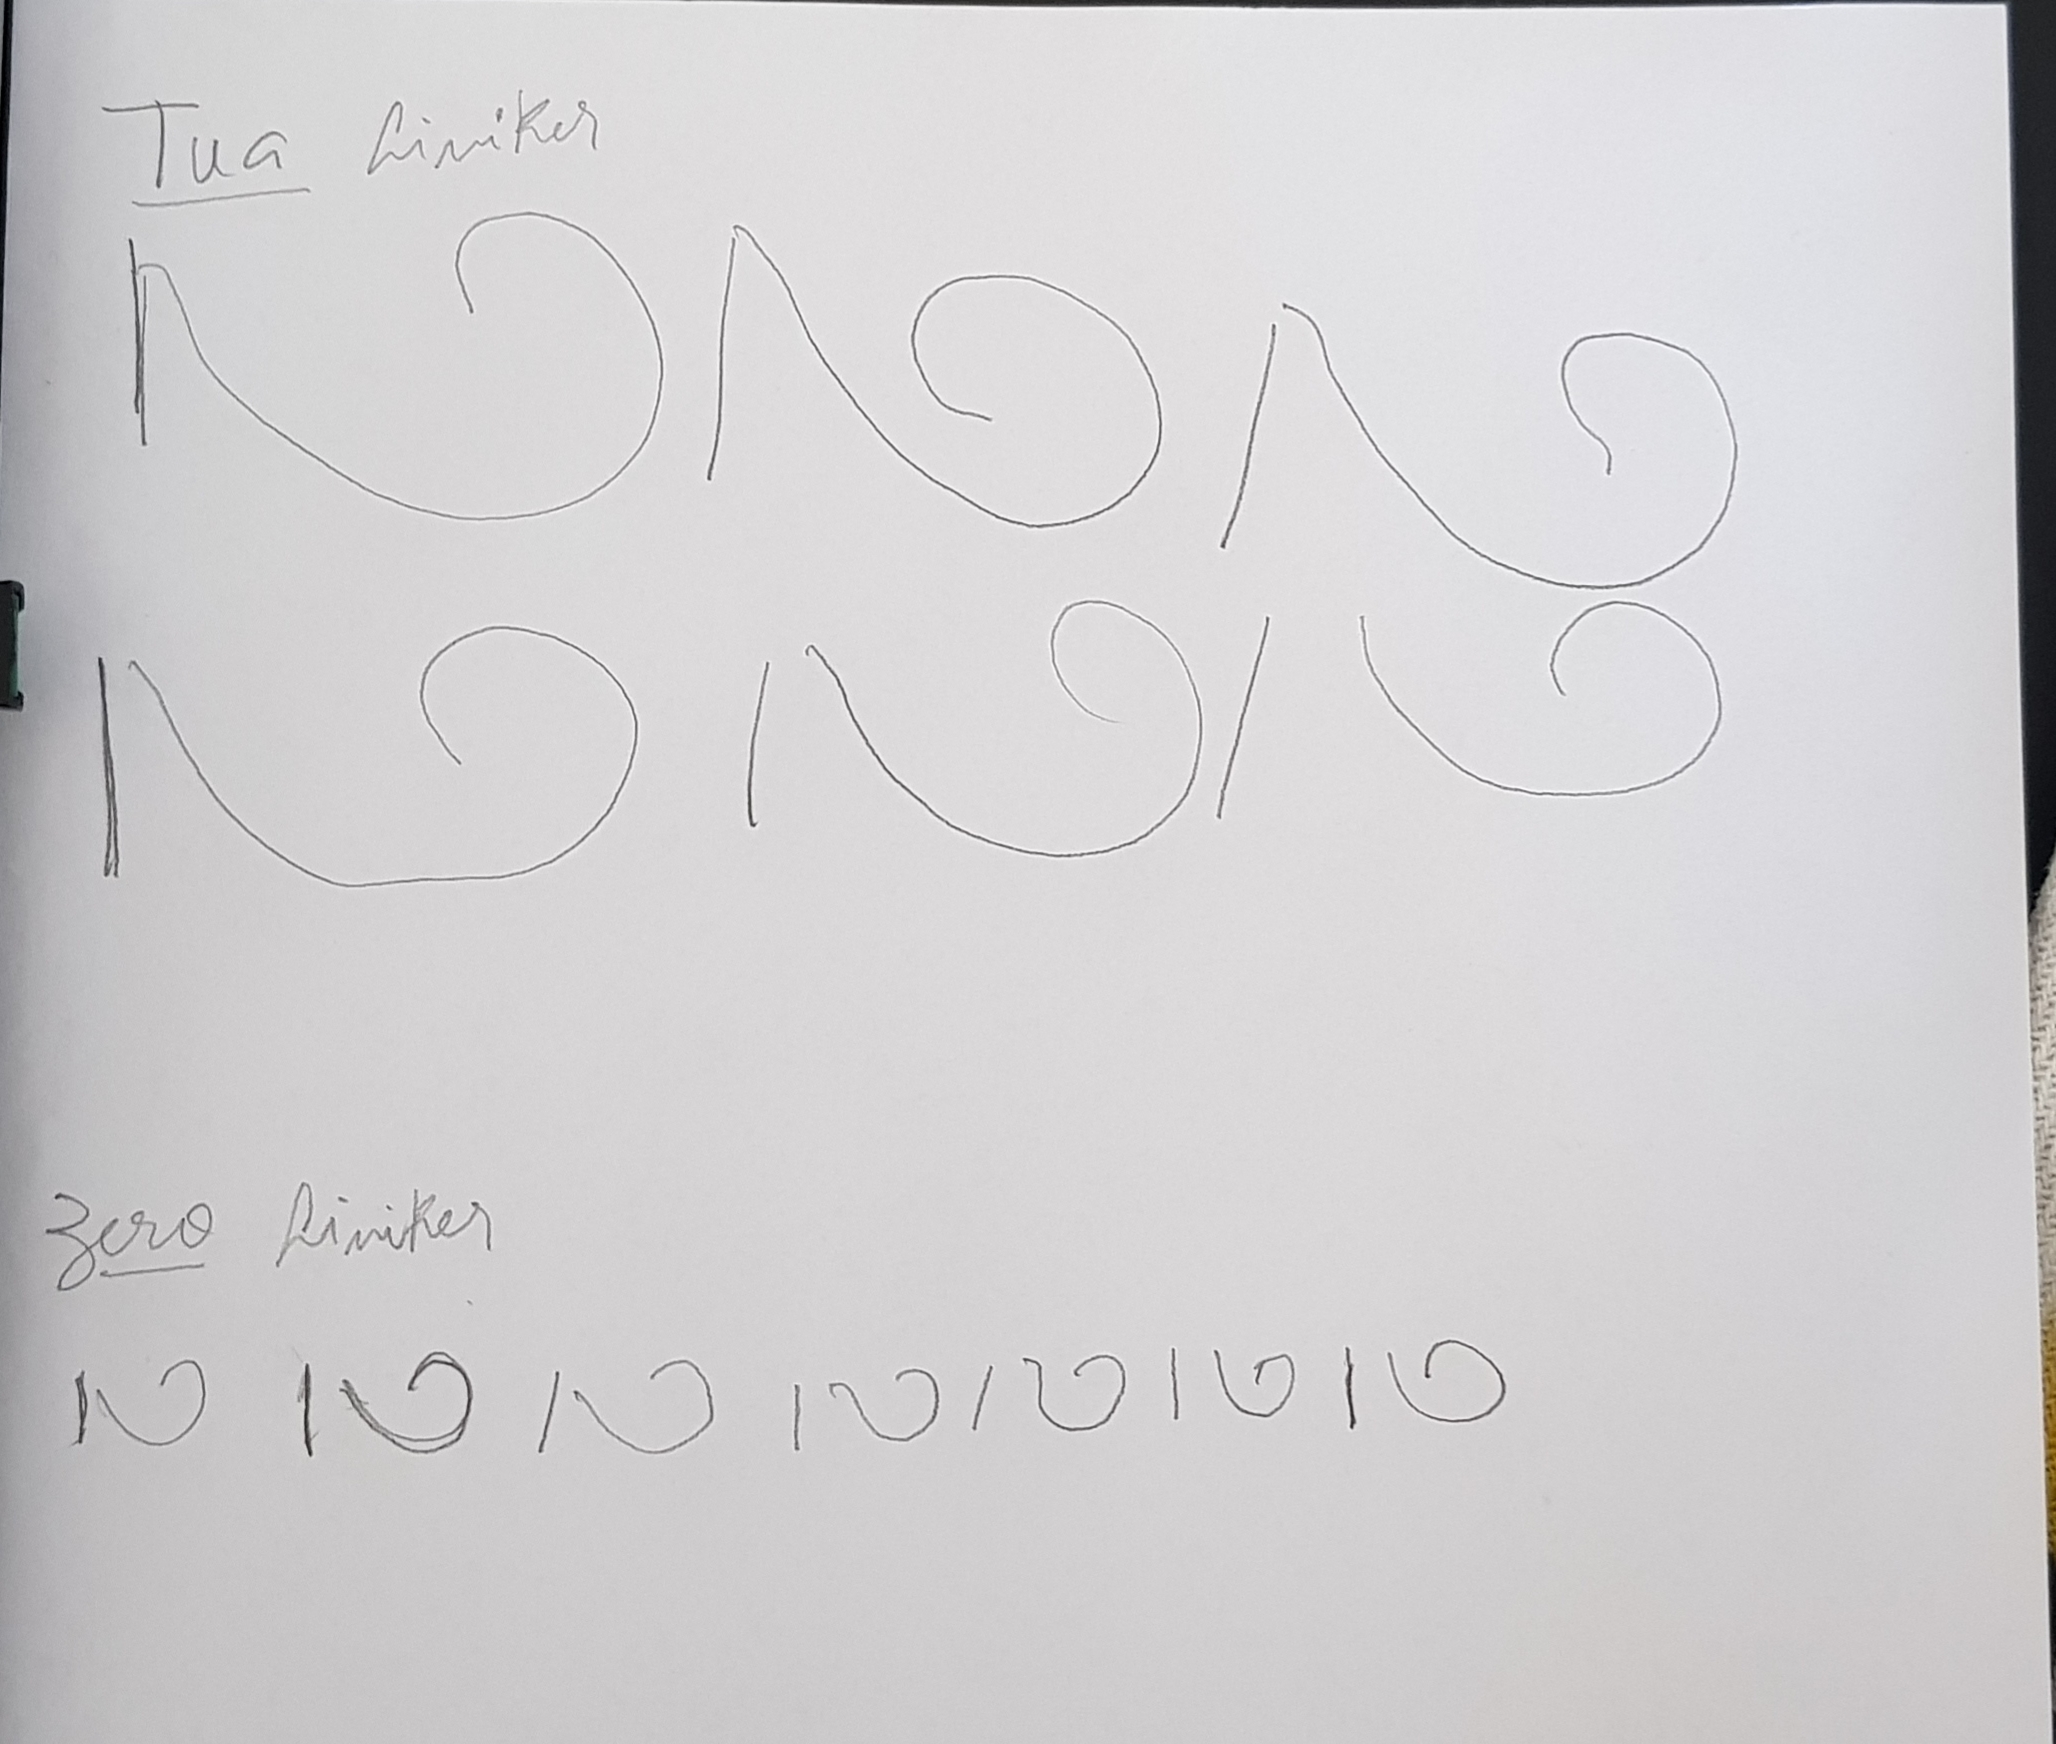 Tua Liniker
Zero Liniker